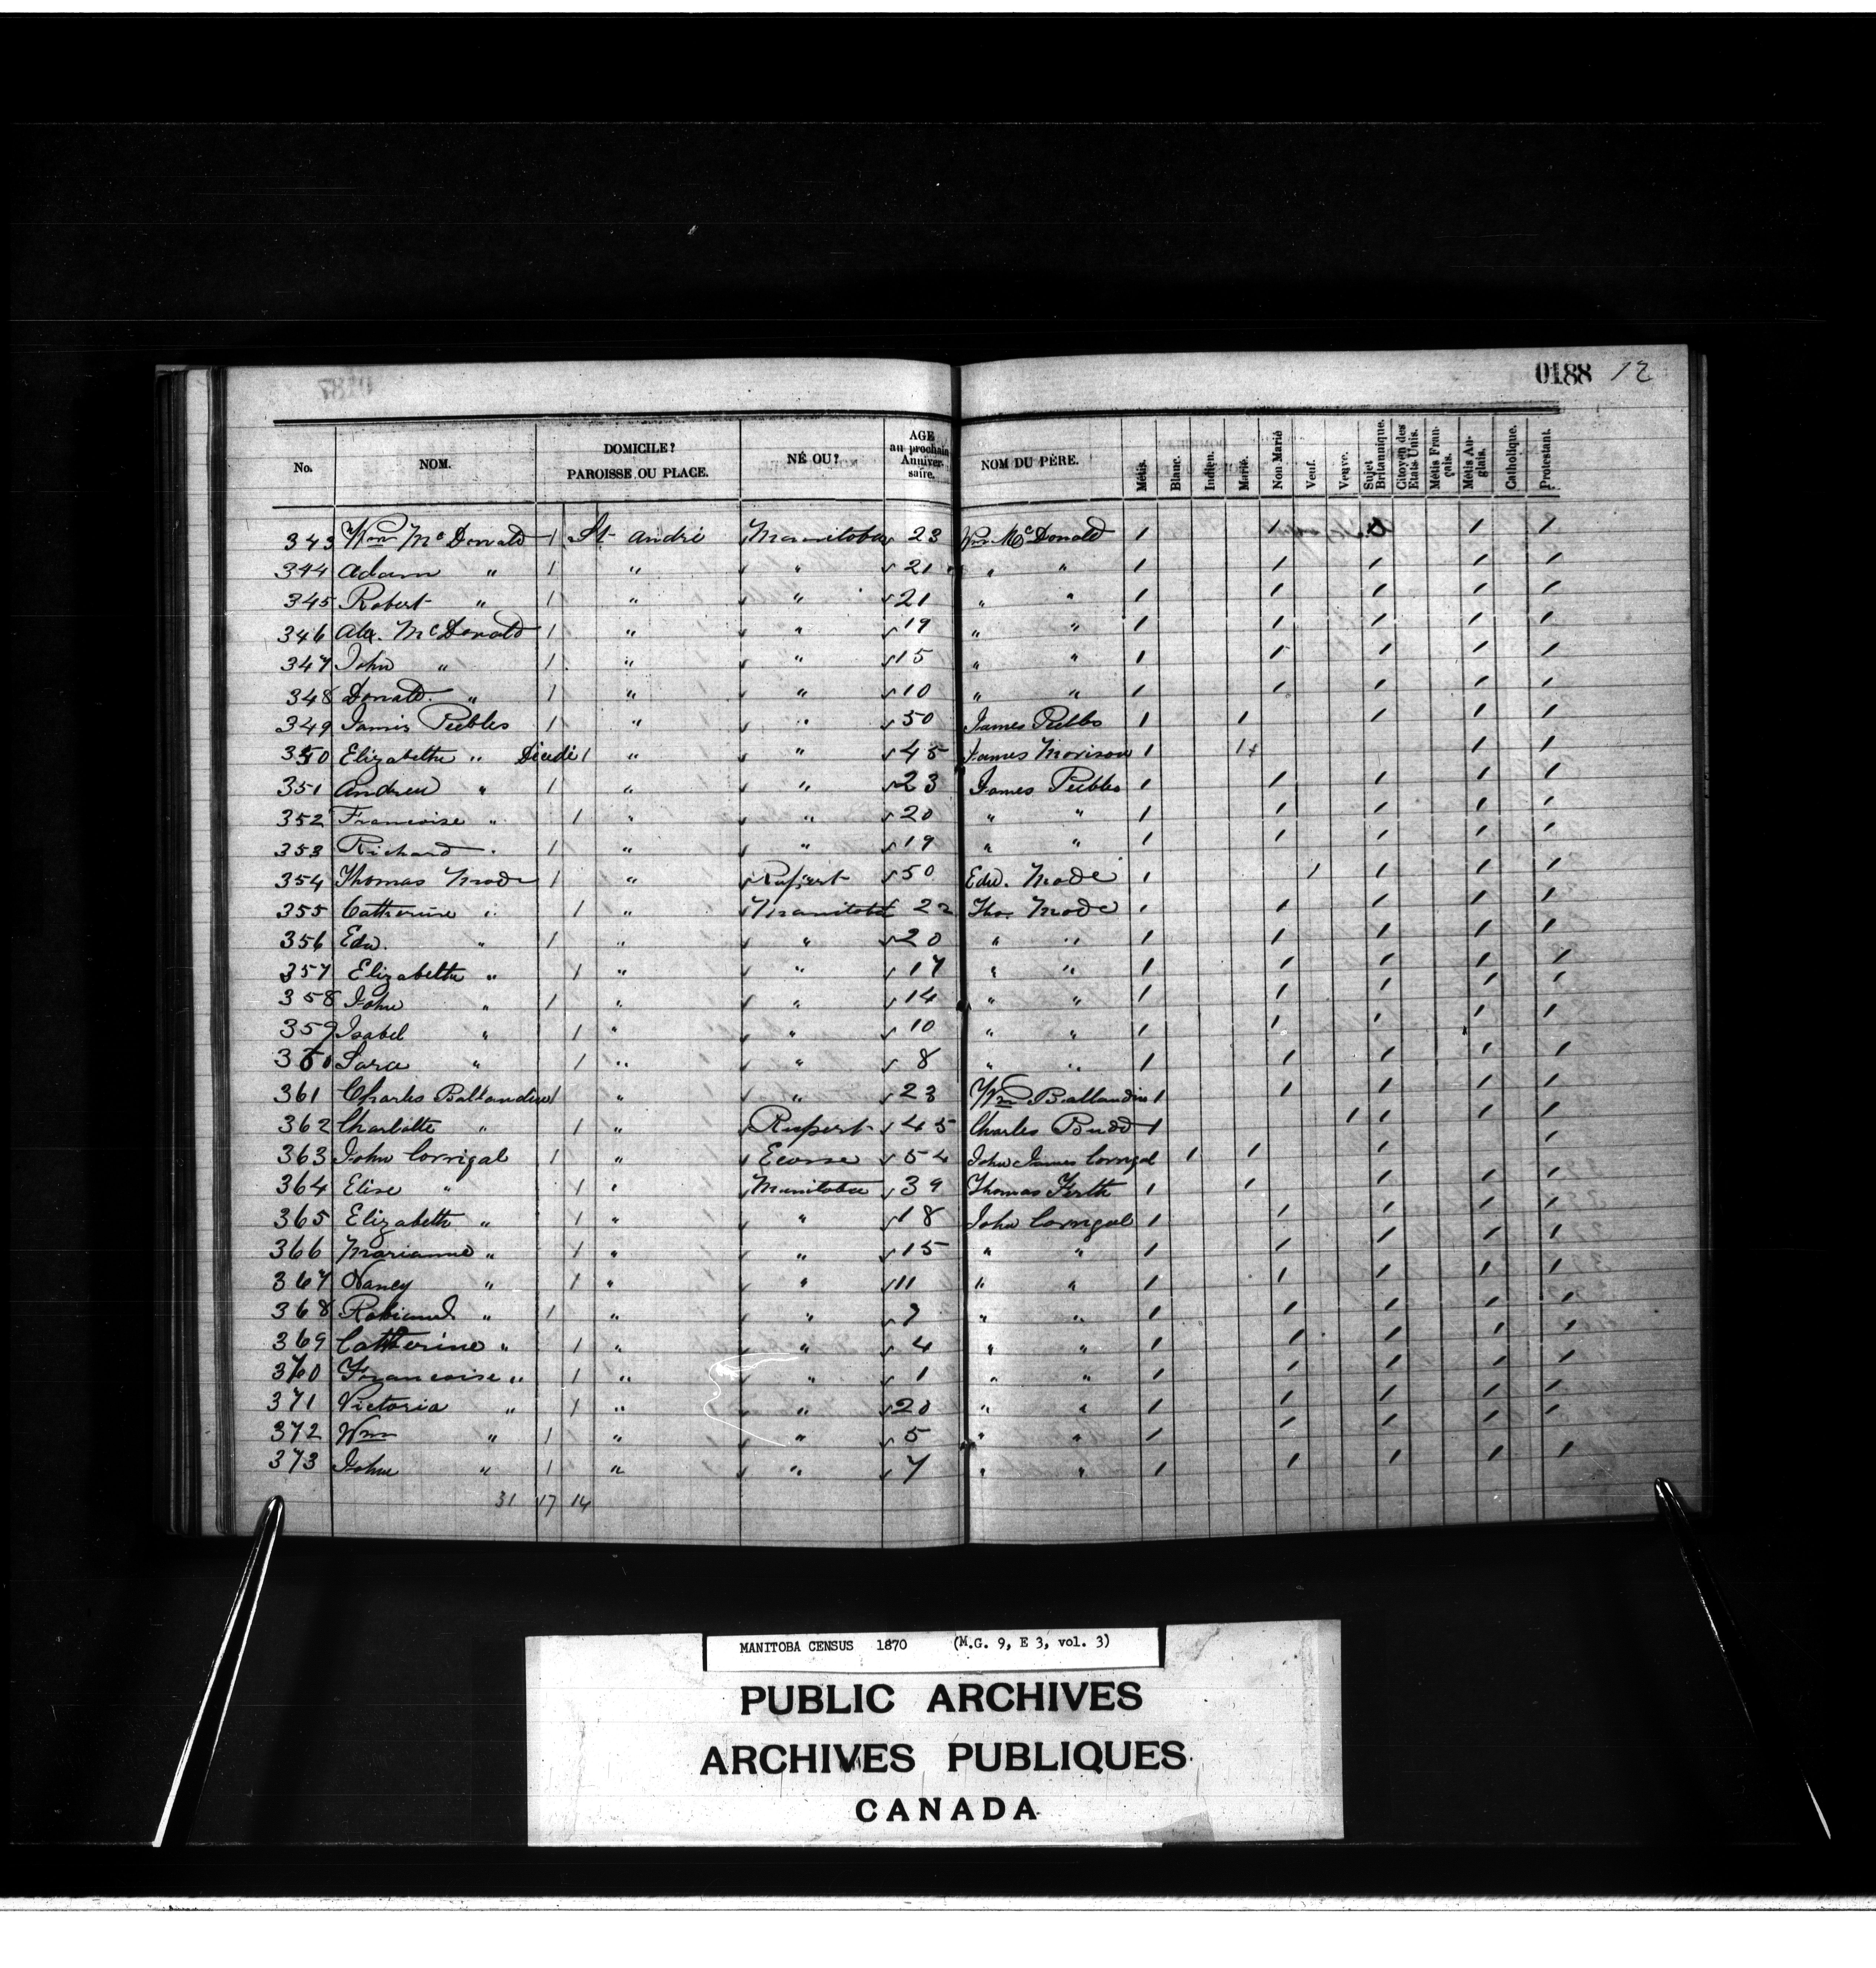 0188 12
No. NOM. DOMICILE? PAROISSE OU PLACE. NÉ OU? AGE au prochain Anniversaire. NOM DU PÈRE. Métis. Blanc. Indien. Marié. Non Marié Veuf. Veuve. Sujet Britannique. Citoyen des Etats Unis. Métis Français. Métis Anglais. Catholique. Protestant.
343 Wm McDonald 1 St André Manitoba 23 Wm McDonald 1 1 1 1
344 Adam " 1 " " 21 " " 1 1 1 1 1
345 Robert " 1 " " 21 " " 1 1 1 1 1
346 Alex. McDonald 1 " " 19 " " 1 1 1 1 1
347 John " 1 " " 15 " " 1 1 1 1 1
348 Donald " 1 " " 10 " " 1 1 1 1 1
349 James Peebles 1 " " 50 James Peebles 1 1 1 1 1
350 Elizabeth " Décédé 1 " " 45 James Morison 1 1 1 1
351 Andrew " 1 " " 23 James Peebles 1 1 1 1 1
352 Francoise " 1 " " 20 " " 1 1 1 1 1
353 Richard " 1 " " 19 " " 1 1 1 1 1
354 Thomas Mode 1 " Rupert 50 Edw. Mode 1 1 1 1 1
355 Catherine " 1 " Manitoba 22 Tho. Mode 1 1 1 1 1
356 Edw. " 1 " " 20 " " 1 1 1 1 1
357 Elizabeth " 1 " " 17 " " 1 1 1 1 1
358 John " 1 " " 14 " " 1 1 1 1 1
359 Isabel " 1 " " 10 " " 1 1 1 1 1
360 Sara " 1 " " 8 " " 1 1 1 1 1
361 Charles Ballandine 1 " " 23 Wm Ballandine 1 1 1 1 1
362 Charlotte " 1 " Rupert 45 Charles Budd 1 1 1 1 1
363 John Corrigal 1 " Ecosse 54 John James Corrigal 1 1 1 1
364 Elise " 1 " Manitoba 39 Thomas Firth 1 1 1 1 1
365 Elizabeth " 1 " " 18 John Corrigal 1 1 1 1 1
366 Marianne " 1 " " 15 " " 1 1 1 1 1
367 Nancy " 1 " " 11 " " 1 1 1 1 1
368 " 1 " " " " 1 1 1 1 1
369 Catherine " 1 " " 4 " " 1 1 1 1 1
370 Francoise " 1 " " 1 " " 1 1 1 1 1
371 Victoria " 1 " " 20 " " 1 1 1 1 1
372 Wm " 1 " " 5 " " 1 1 1 1 1
373 John " 1 " " 7 " " 1 1 1 1 1
31 17 14
MANITOBA CENSUS 1870 (M.G. 9, E 3, vol. 3)
PUBLIC ARCHIVES
ARCHIVES PUBLIQUES
CANADA